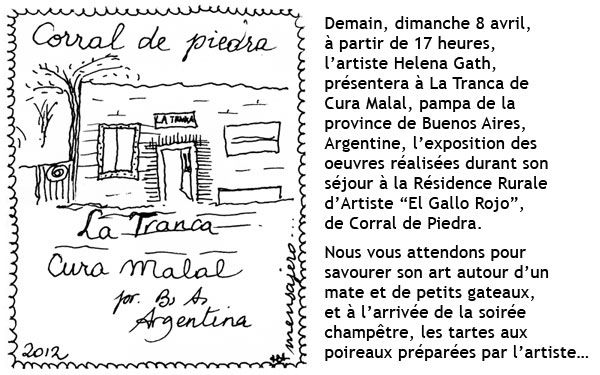 Corral de piedra
LA TRANCA
La Tranca
Cura Malal
por. B. A.
Argentina
mensajero...
2012
Demain, dimanche 8 avril,
à partir de 17 heures,
l’artiste Helena Gath,
présentera à La Tranca de
Cura Malal, pampa de la
province de Buenos Aires,
Argentine, l’exposition des
oeuvres réalisées durant son
séjour à la Résidence Rurale
d’Artiste “El Gallo Rojo”,
de Corral de Piedra.
Nous vous attendons pour
savourer son art autour d’un
mate et de petits gateaux,
et à l’arrivée de la soirée
champêtre, les tartes aux
poireaux préparées par l’artiste…